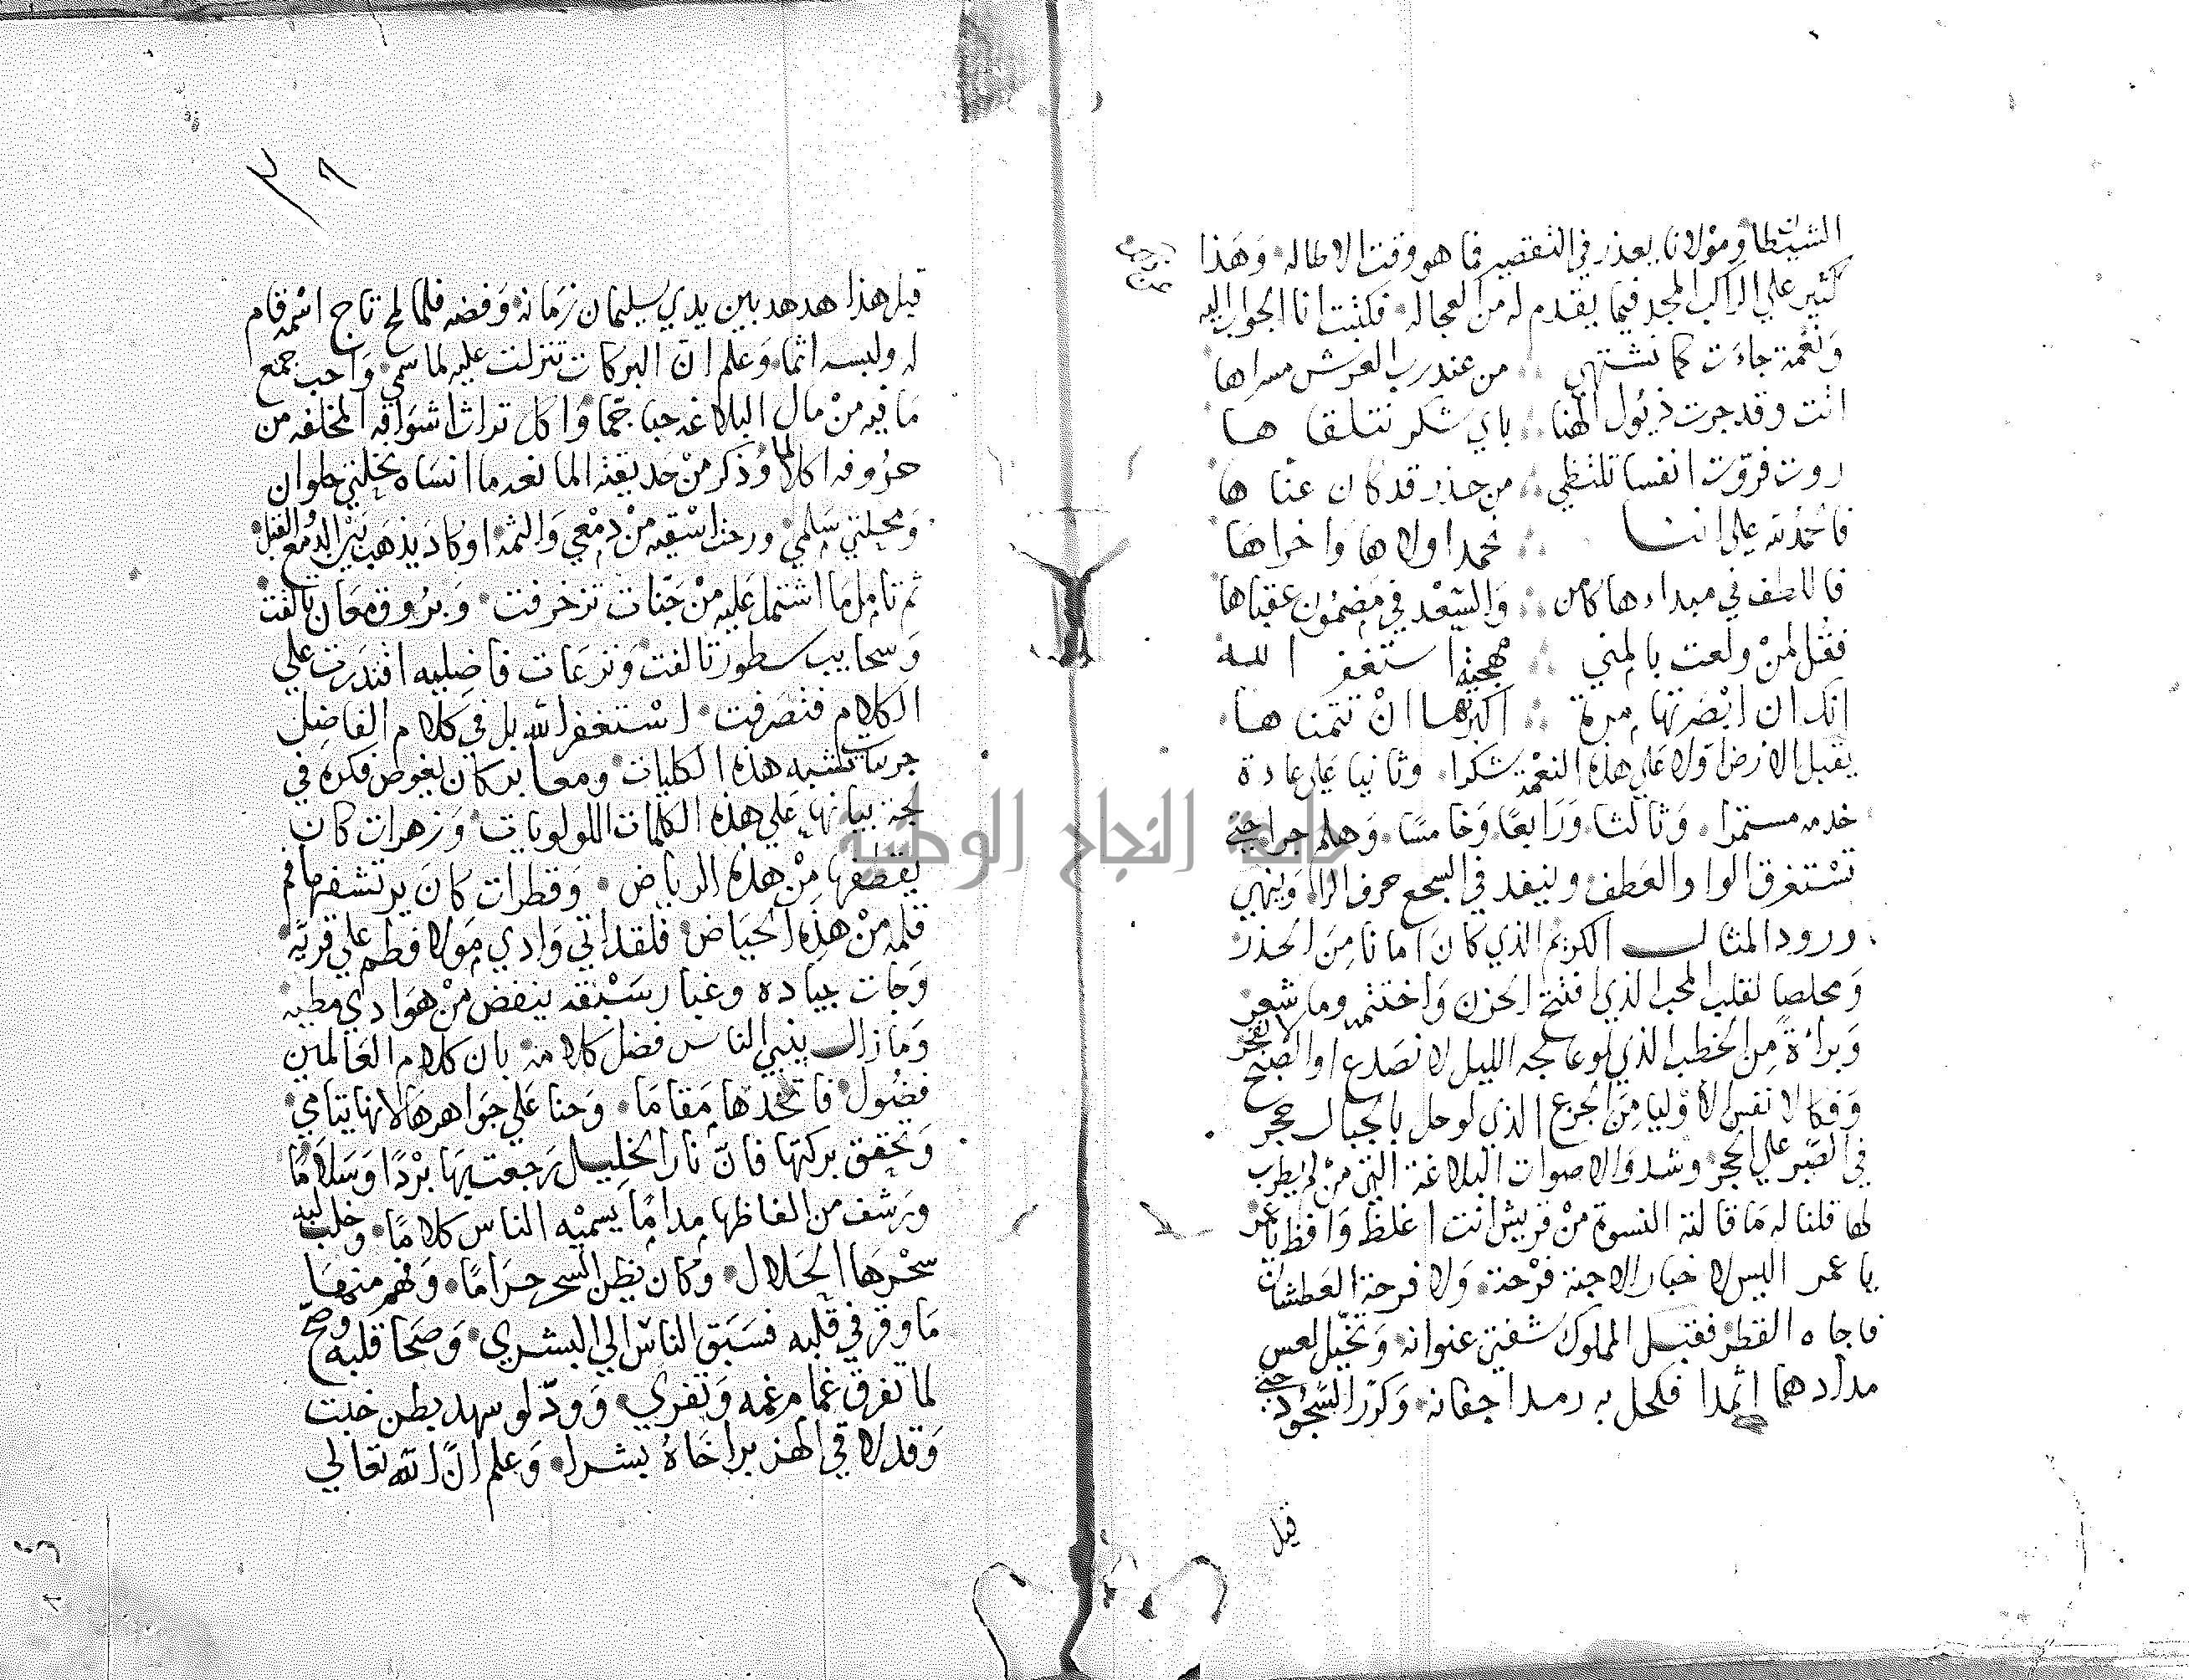 الشيطا ومولانا يعذر في التقصير فما هو وقت الاطاله وهذا
كثير علي الراكب المجد فيما يقدم له من العجاله فكتبت انا الجواب اليه
ونعمة جاءت كما نشتهي من عند رب العرش مسراها
اتت وقد جرت ذيول الهنا باي شكر نتلقاها
روت فروت انفسا تلتظي من حذر قد كان غشاها
فاحمدته علي اننا نحمد اولاها واخراها
فاللطف في مبداءها كامن والسعد في مضمون عقباها
فقل لمن ولعت بالمني مهجته استغفر الله
انك ان ابصرتها مرة اكبرتها ان تتمناها
يقبل الارض اولا علي هذه النعمة شكرا وثانيا علي عادة
خدمه مستمرا وثالثا ورابعا وخامسا وهلم جرا حتي
تستغرق الواو العطف وينفد في السجع حرف الرا وينهي
ورود المثال الكريم الذي كان امانا من الحذر
ومخلصا لقلب المحب الذي افتتح الحزن واختتمه وما شعر
وبراءة من الخطب الذي لو عالجه الليل لانصدع او الصبح لانفجر
وفكا لانفس الاوليا من الجزع الذي لو حل بالجبال حجر
في الصبر علي الحجر وشدو الاصوات البلاغة التي من لم يطرب
لها قلنا له ما قالته النسوة من قريش انت اغلظ وافظ يا عمر
يا عمر اليس لاخبار الاحبة فرحة ولا فرحة العطشان
فاجاه القطر فقبل المملوك شفتي عنوانه وتخيل لعس
مدادهما اثمدا فكحل به رمد اجفانه وكرر السجود حتي
قيل
٣٩
قيل هذا هدهد بين يدي سليمان زمانه وفضه فلما لمح تاج اسمه قام
له ولبسه اثما وعلم ان البركات تنزلت عليه لما سمي واحب جمع
ما فيه من مال البلاغه حبا جما واكل تراث اشواقه المخلفه من
حروفه اكلا لما وذكر من حديقته الما نعه ما انساه نخلتي حلوان
ومحلتي سلمي ورحت اسقيه من دمعي والثمه او كاد يذهب بين الدمع والقبل
ثم تامل ما اشتمل عليه من جنات تزخرفت وبروق معان تالقت
وسحايب سطور تالفت ونزعات فاضليه اقتدرت علي
الكلام فتصرفت استغفر الله بل في كلام الفاضل
جريات تشبه هذه الكليات ومعابر كان يغوص فكره في
لجة بيانها علي هذه الكلمات اللولويات وزهرات كان
يقطفها من هذه الرياض وقطرات كان يرتشفها فم
قلمه من هذه الحياض فلقد اتي وادي مولانا فطم علي قريه
وجات جياده وغبار سبقه ينفض من هوادي مطيه
وما زال ينبي الناس فضل كلامه بان كلام العالمين
فضول فاتخذها مقاما وحنا علي جواهرها لانها يتامي
وتحقق بركتها فان نار الخليل رجعت بها بردا وسلاما
ورشف من الفاظها مداما يسميه الناس كلاما وخلب لبه
سحرها الحلال وكان يظن السحر حراما وفهم منها
ما وقر في قلبه فسبق الناس الي البشري وصحا قلبه وصح
لما تفرق غمام غمه وتفري وود لو شهد بطن خبت
وقد لاقي الهزبر اخاه بشرا وعلم ان الله تعالي
جامعة النجاح الوطنية